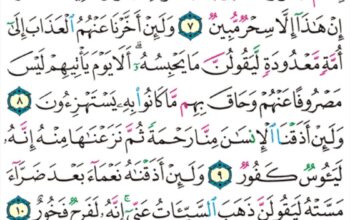 إِنْ هَٰذَآ إِلَّا سِحْرٌ مُّبِينٌ ٧ وَلَئِنْ أَخَّرْنَا عَنْهُمُ ٱلْعَذَابَ إِلَىٰٓ
أُمَّةٍ مَّعْدُودَةٍ لَّيَقُولُنَّ مَا يَحْبِسُهُۥٓ ۗ أَلَا يَوْمَ يَأْتِيهِمْ لَيْسَ
مَصْرُوفًا عَنْهُمْ وَحَاقَ بِهِم مَّا كَانُوا۟ بِهِۦ يَسْتَهْزِءُونَ ٨
وَلَئِنْ أَذَقْنَا ٱلْإِنسَٰنَ مِنَّا رَحْمَةً ثُمَّ نَزَعْنَٰهَا مِنْهُ إِنَّهُۥ
لَيَـُٔوسٌ كَفُورٌ ٩ وَلَئِنْ أَذَقْنَٰهُ نَعْمَآءَ بَعْدَ ضَرَّآءَ
مَسَّتْهُ لَيَقُولَنَّ ذَهَبَ ٱلسَّيِّـَٔاتُ عَنِّىٓ ۚ إِنَّهُۥ لَفَرِحٌ فَخُورٌ ١٠